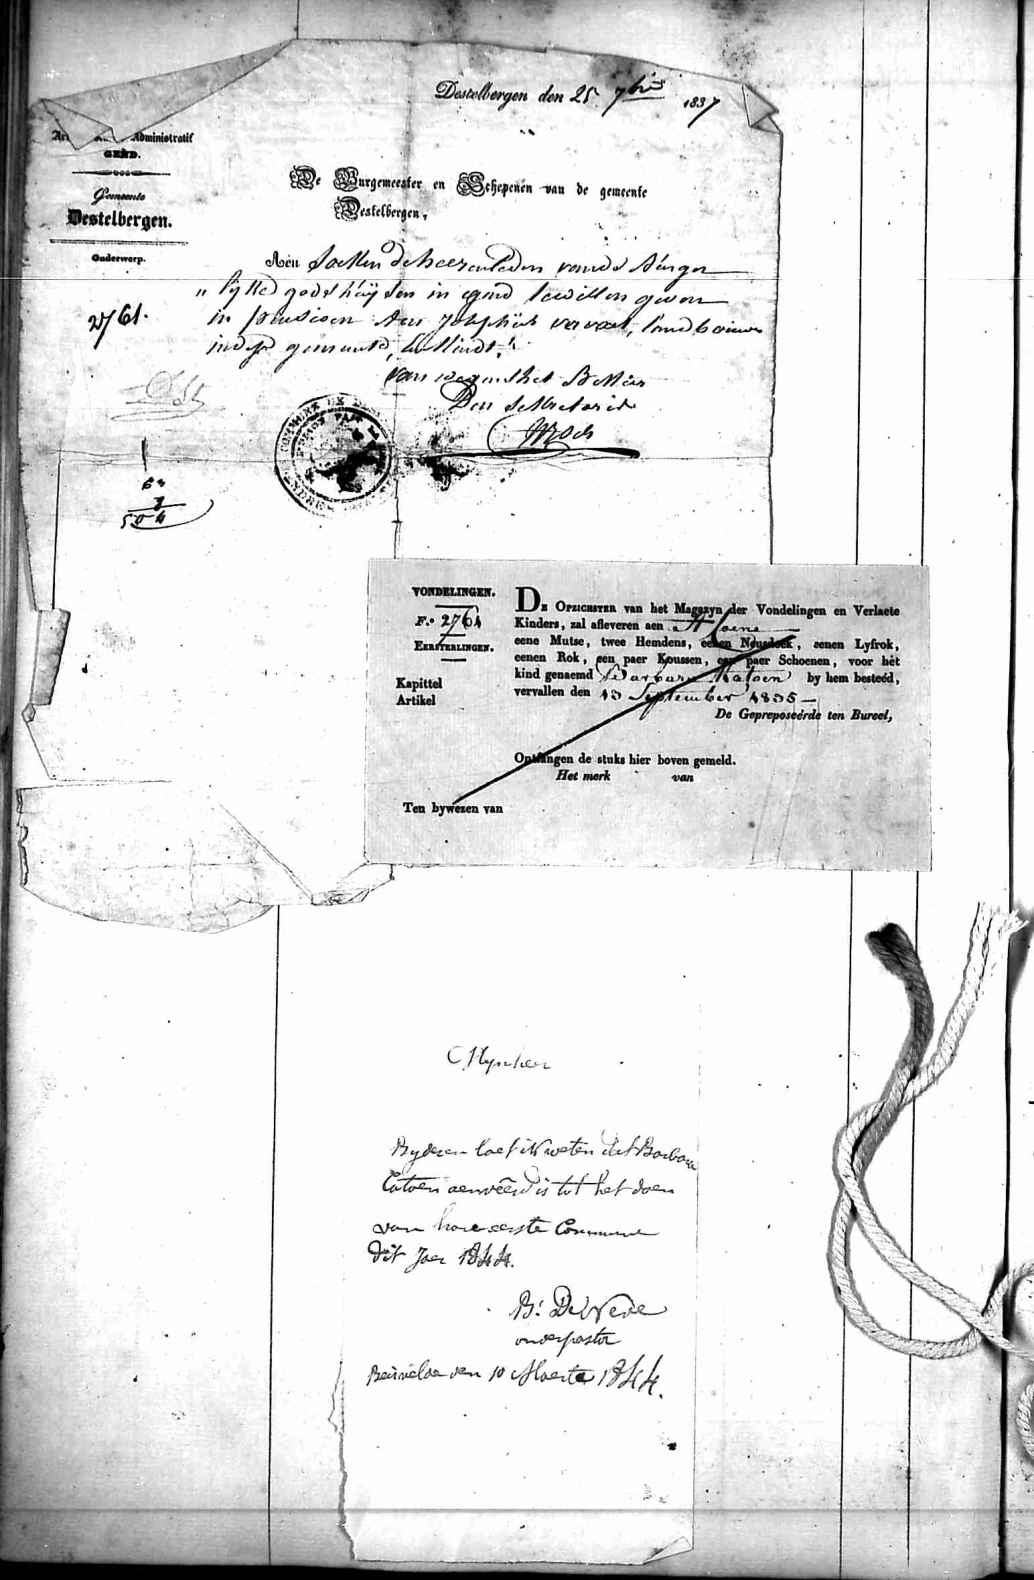 Destelbergen den 25 7bris 1837
Administratif
GEND.
Gemeente
Destelbergen.
Onderwerp.
2761.
De Burgemeester en Schepenen van de gemeente
Destelbergen,
Aen
godshuysen in gend willen geven
in pensioen Aen Josephus vervaet, landbouwer
gemeente,
van wegens het
Den sekretaris
63
8
504
VONDELINGEN.
F.º 2761
EERSTERLINGEN.
Kapittel
Artikel
DE OPZICHSTER van het Magazyn der Vondelingen en Verlaete
Kinders, zal afleveren aen
eene Mutse, twee Hemdens, eenen Neusdoek, eenen Lyfrok,
eenen Rok, een paer Koussen, een paer Schoenen, voor het
kind genaemd Barbara Katoen by hem besteéd,
vervallen den 13 September 1835
De Geprepose̋erde ten Bureel,
Ontfangen de stuks hier boven gemeld.
Het merk van
Ten bywezen van
Mynheer
Byderen laet ik weten dat Barbara
Catoen aenveerd is tot het doen
van hare eerste Communie
dit Jaer 1844.
B. De Nève
onderpastor
Beirvelde den 10 Maerte 1844.